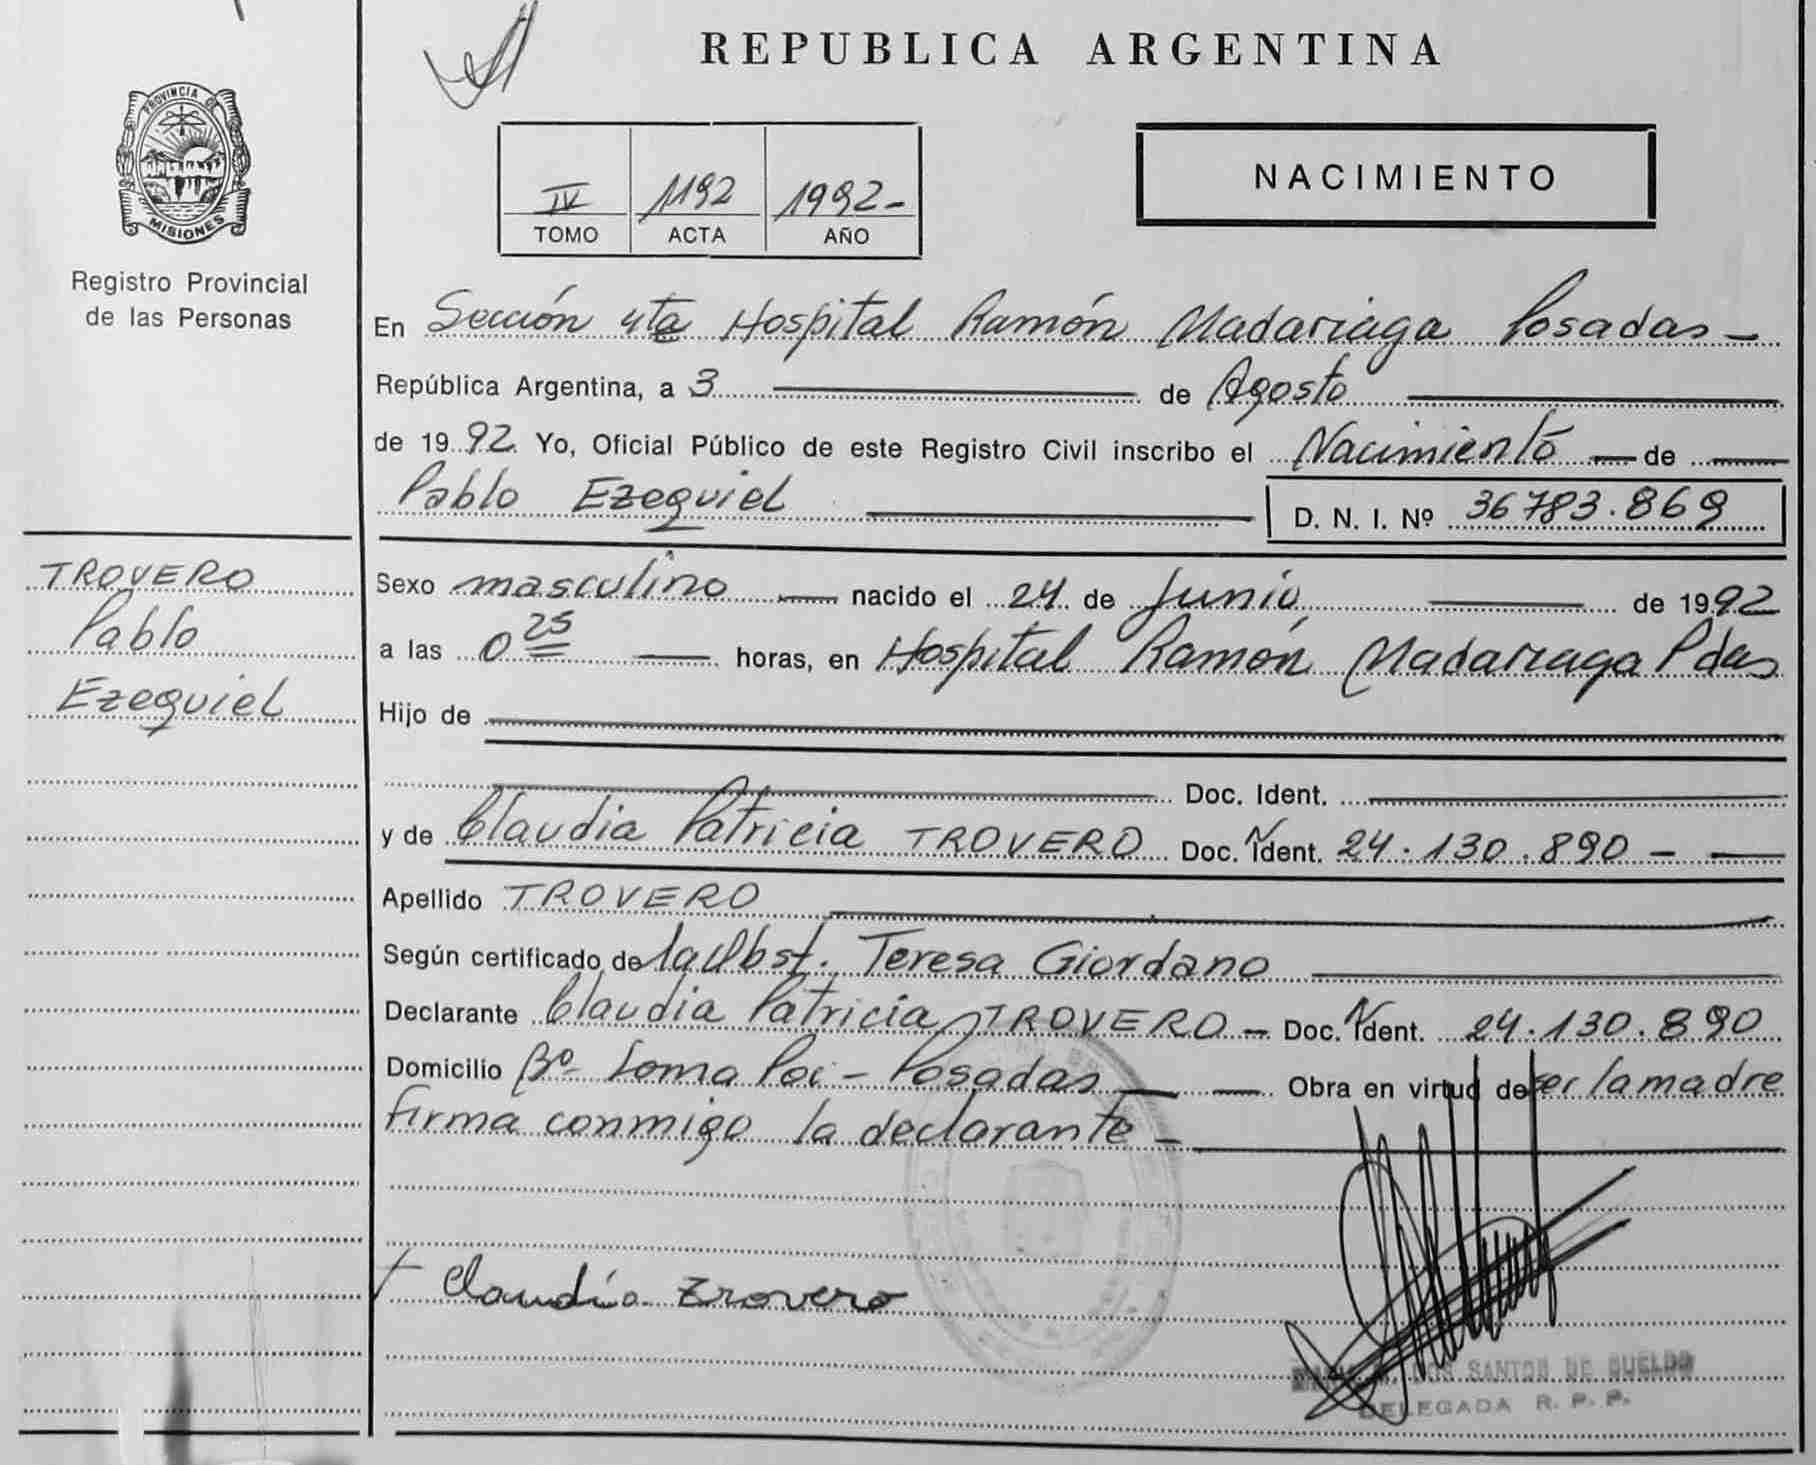 REPUBLICA ARGENTINA
PROVINCIA DE
MISIONES
Registro Provincial
de las Personas
IV 1192 1992-
TOMO ACTA AÑO
NACIMIENTO
En Sección 4ta Hospital Ramón Madariaga Posadas-
República Argentina, a 3 de Agosto
de 1992 Yo, Oficial Público de este Registro Civil inscribo el Nacimiento - de
Pablo Ezequiel D. N. I. Nº 36783.869
TROVERO
Pablo
Ezequiel
Sexo masculino - nacido el 24 de Junio de 1992
a las 0 25 horas, en Hospital Ramón Madariaga Pdas
Hijo de
Doc. Ident.
y de Claudia Patricia TROVERO Doc. Ident. 24.130.890 -
Apellido TROVERO
Según certificado de la Obst. Teresa Giordano
Declarante Claudia Patricia TROVERO - Doc. Ident. 24.130.890
Domicilio Bº Loma Poi - Posadas Obra en virtud de ser la madre
firma conmigo la declarante -
Claudia Trovero
DOS SANTOS DE
DELEGADA R. P. P.